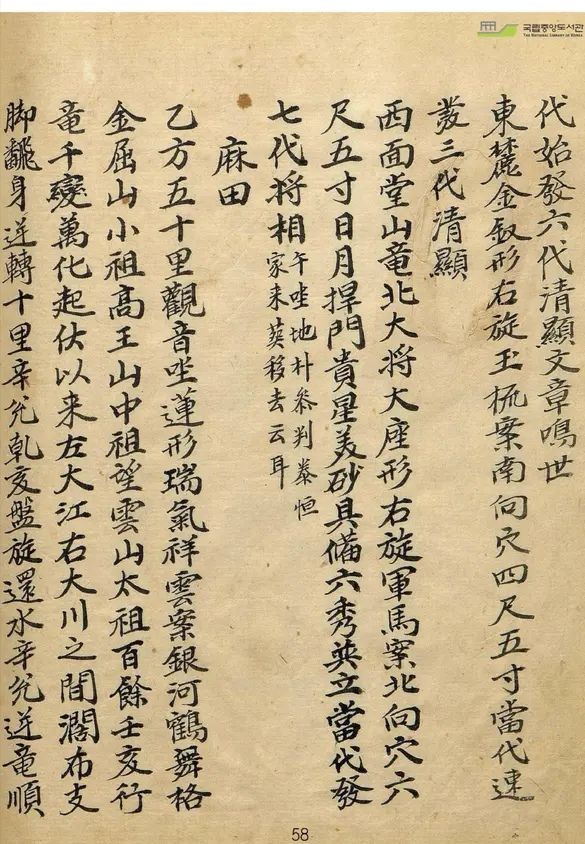 국립중앙도서관
THE NATIONAL LIBRARY OF KOREA
代始發六代清顯文章鳴世
東麓金釵形右旋玉梳案南向穴四尺五寸當代速
發三代清顯
西面堂山竜北大将大座形右旋軍馬案北向穴六
尺五寸日月捍門貴星美砂具備六秀英立當代發
七代将相
午坐地朴叅判泰恒
家来葬移去云耳
麻田
乙方五十里觀音坐蓮形瑞氣祥雲案銀河鶴舞格
金屈山小祖高王山中祖望雲山太祖百餘壬亥行
竜千變萬化起伏以来左大江右大川之間濶布支
脚飜身逆轉十里辛兊乾亥盤旋還水辛兊逆竜順
58